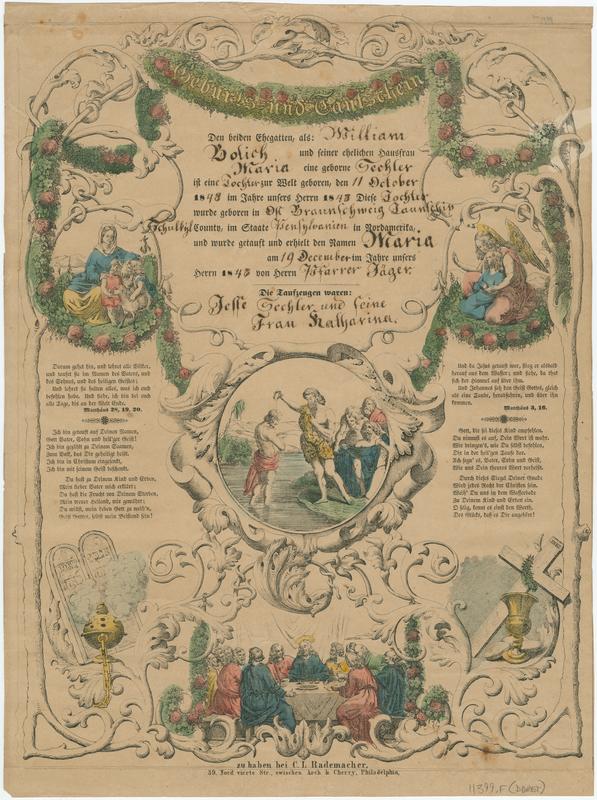 Geburts- und Taufschein
Den beiden Ehegatten, als: William
Bolich und seiner ehelichen Hausfrau
Maria eine geborne Sechler
ist eine Tochter zur Welt geboren, den 11 October
1843 im Jahre unsers Herrn 1843 Diese Tochter
wurde geboren in Ost Braunschweig Taunschip
Schulkyl County, im Staate Pensylvanien in Nordamerika,
und wurde getauft und erhielt den Namen Maria
am 19 December im Jahre unsers
Herrn 1843 von Herrn Pfarrer Jäger.
Die Taufzeugen waren:
Jesse Sechler und seine
Frau Katharina.
Darum gehet hin, und lehret alle Völker,
und taufet sie im Namen des Vaters, und
des Sohnes, und des heiligen Geistes;
Und lehret sie halten alles, was ich euch
befohlen habe. Und siehe, ich bin bei euch
alle Tage, bis an der Welt Ende.
Matthäus 28, 19. 20.
Ich bin getauft auf Deinen Namen,
Gott Vater, Sohn und heil'ger Geist!
Ich bin gezählt zu Deinem Saamen,
zum Volk, das Dir geheiligt heißt.
Ich bin in Christum eingesenkt,
Ich bin mit seinem Geist beschenkt.
Du hast zu Deinem Kind und Erben,
Mein lieber Vater mich erklärt;
Du hast die Frucht von Deinem Sterben,
Mein treuer Heiland, mir gewährt;
Du willst, mein neben Gott zu weih'n,
Geist Gottes, selbst mein Beistand sein!
Und da Jesus getauft war, stieg er alsbald
herauf aus dem Wasser; und siehe, da that
sich der Himmel auf über ihm.
Und Johannes sah den Geist Gottes, gleich
als eine Taube, herabfahren, und über ihn
kommen.
Matthäus 3, 16.
Gott, dir sei dieses Kind empfohlen,
Du nimmst es auf, Dein Wort ist wahr.
Wir bringen's, wie Du selbst befohlen,
Dir in der heil'gen Taufe dar.
Ach segn' es, Vater, Sohn und Geist,
Wie uns Dein theures Wort verheißt.
Durch dieses Siegel Deiner Gnade
Wird jedes Recht der Christen sein.
Weih' Du uns in dem Wasserbade
Zu Deinem Kind und Erben ein.
O selig, kennt es einst den Werth,
Des Glücks, daß es Dir angehört!
zu haben bei C. L. Rademacher,
39. Nord vierte Str., zwischen Arch & Cherry, Philadelphia,
11399.F (Doret)